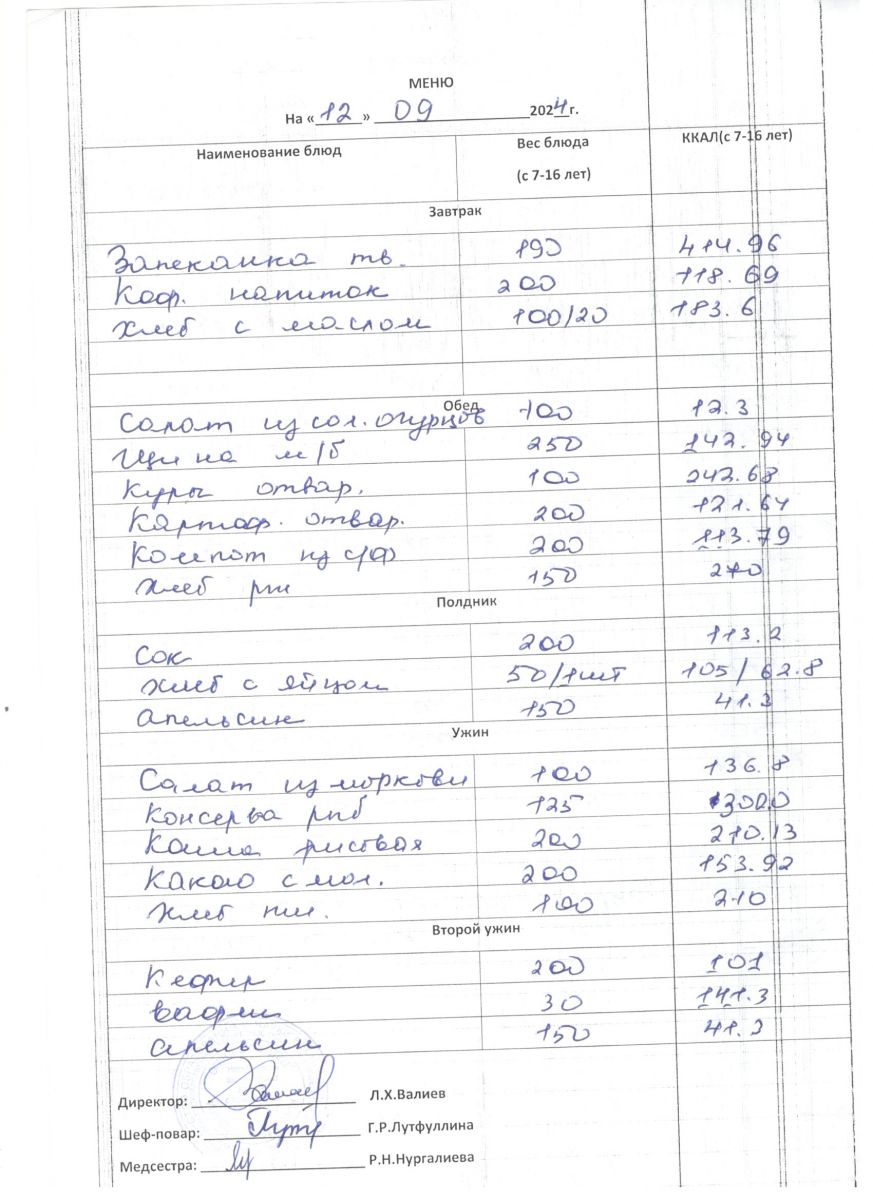 МЕНЮ
На « 12 » 09 2024 г.
Наименование блюд Вес блюда (с 7-16 лет) ККАЛ(с 7-16 лет)
Завтрак
Запеканка тв. 190 414.96
Коф. напиток 200 118.69
Хлеб с маслом 100/20 183.6
Обед
Салат из сол. огурцов 100 12.3
Щи на м/б 250 142.94
Куры отвар. 100 242.68
Картоф. отвар. 200 121.64
Компот из с/ф 200 113.79
Хлеб рж 150 270
Полдник
Сок 200 113.2
Хлеб с яйцом 50/1шт 105/62.8
Апельсин 150 41.3
Ужин
Салат из моркови 100 136.8
Консерва рыб 125
Каша рисовая 200 210.13
Какао с мол. 200 153.92
Хлеб пш. 100 210
Второй ужин
Кефир 200 101
Вафли 30 141.3
Апельсин 150 41.3
Директор: Л.Х.Валиев
Шеф-повар: Г.Р.Лутфуллина
Медсестра: Р.Н.Нургалиева